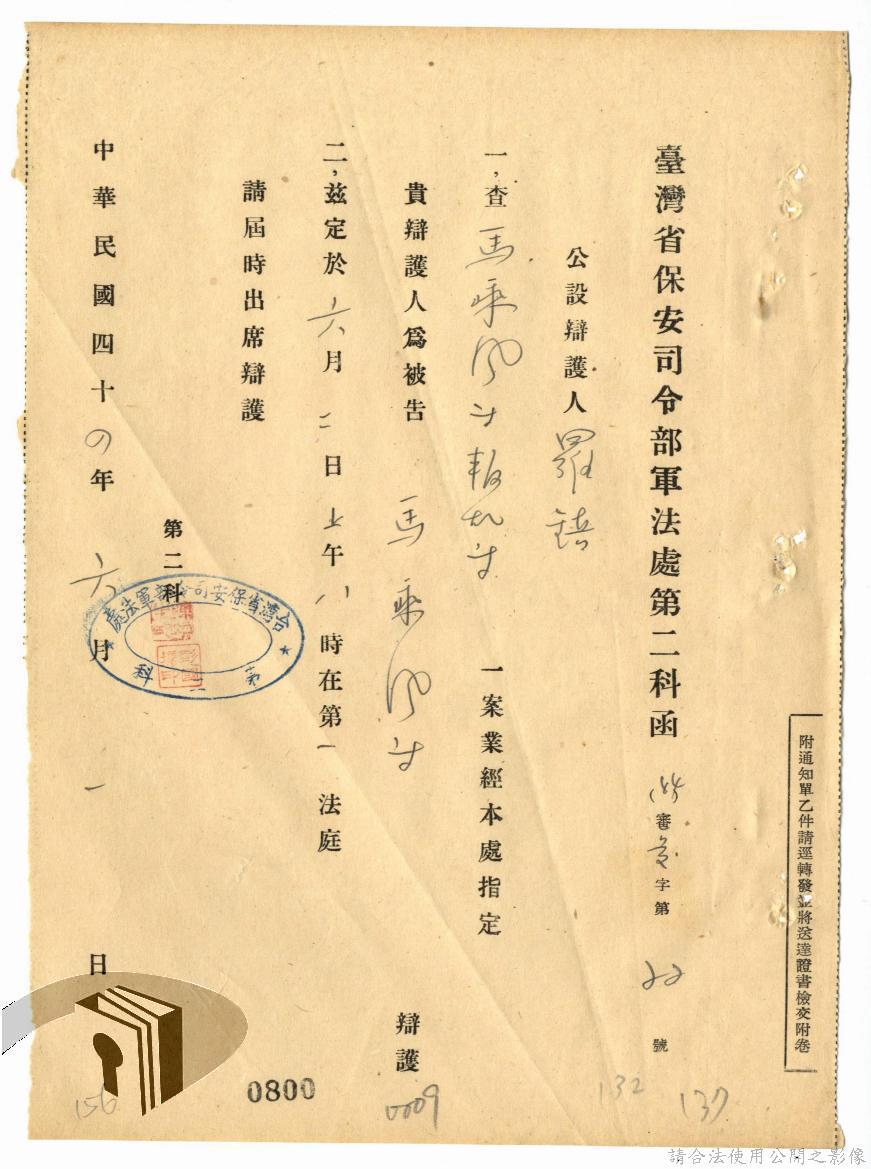 附通知單乙件請逕轉發並將送達證書檢交附卷
臺灣省保安司令部軍法處第二科函
審 字第 號
公設辯護人羅
一,查馬乘風等叛亂等 一案業經本處指定
貴辯護人為被告 馬乘風等 辯護
二,茲定於六月二日上午八時在第一法庭
請屆時出席辯護
第二科
台灣省保安司令部軍法處
第二科
中華民國四十四年六月一日
137
132
0009
0800
156
請合法使用公開之影像